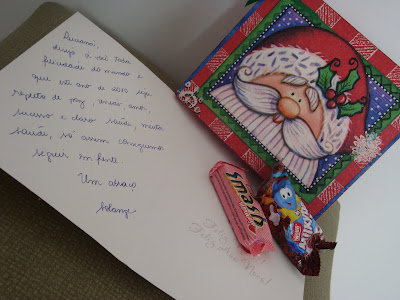 desejo à você toda
felicidade do mundo e
que este ano de 2010 seja
repleto de paz, união, amor,
sucesso e claro saúde, muita
saúde, só assim conseguimos
seguir em frente.
Um abraço
Solange
Smash
Nestlé
Feliz
Feliz Ano Novo!